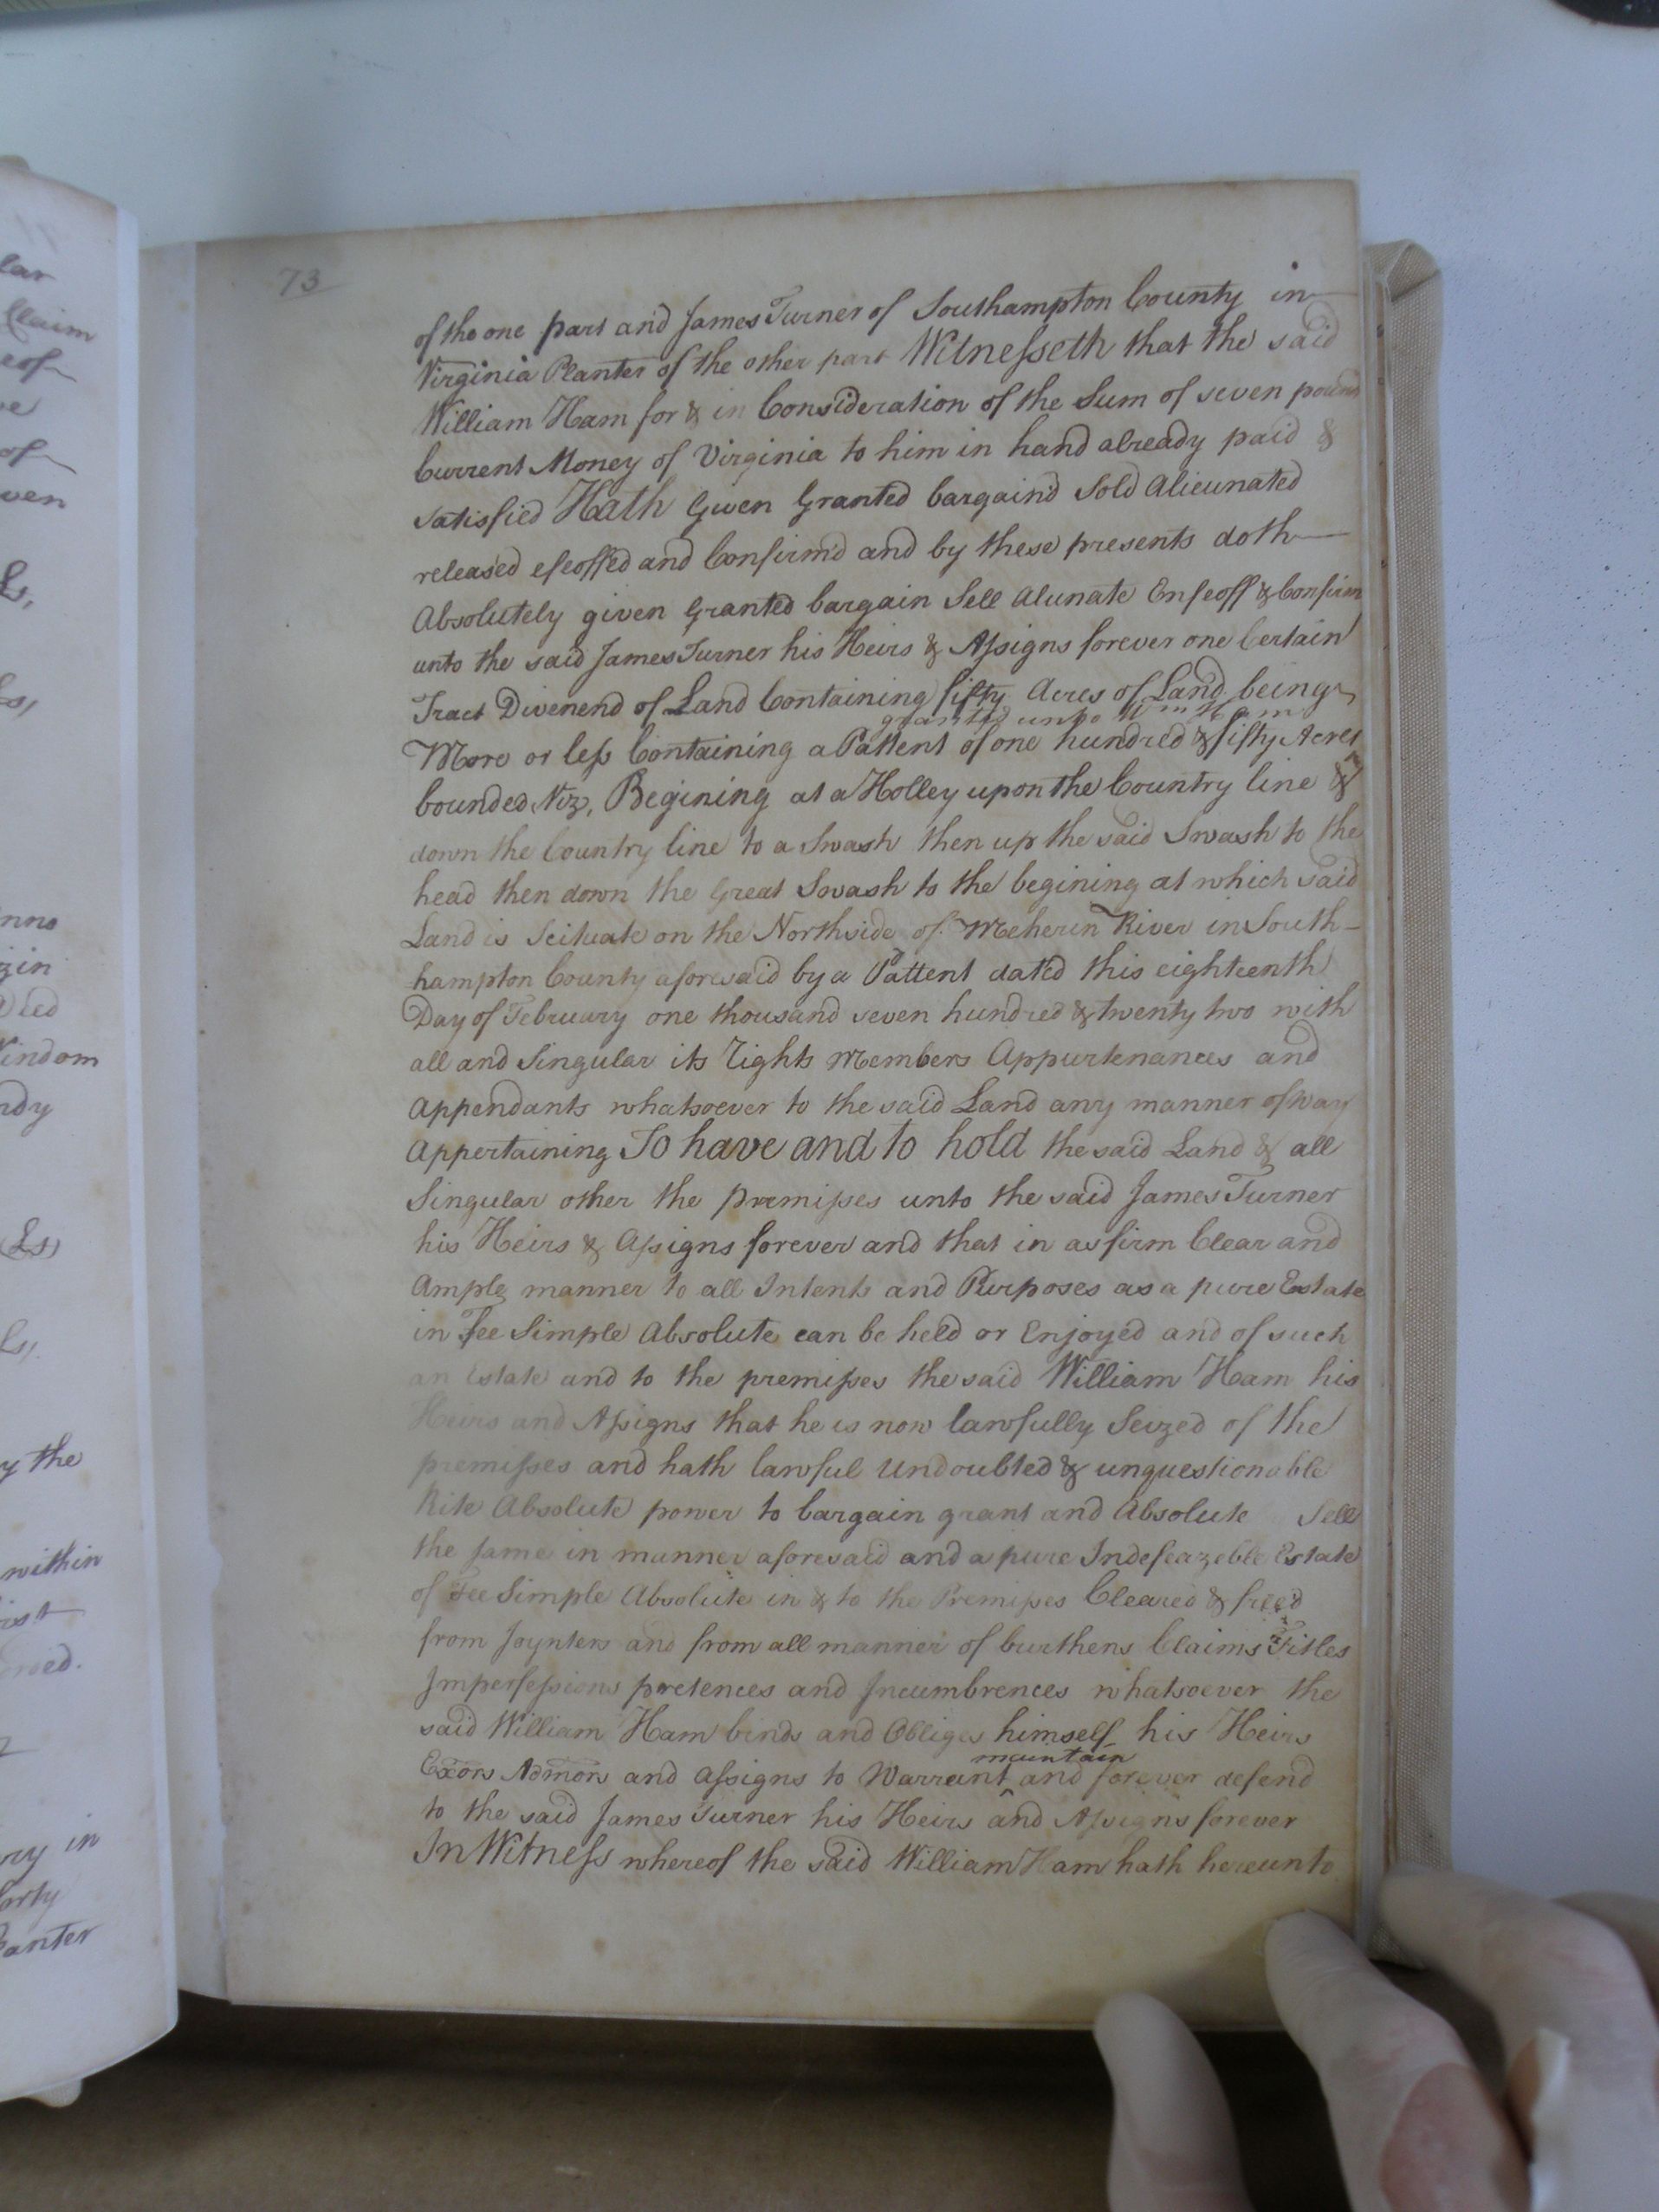 lar
Claim
eof
ve
of
ven
Ls,
Ls,
nno
gin
Deed
Windom
ndy
(Ls)
Ls,
y the
within
ist
oved.
ry in
orty
anter
73
of the one part and James Turner of Southampton County in
Virginia Planter of the other part Witnesseth that the said
William Ham for & in Consideration of the Sum of seven pound
Current Money of Virginia to him in hand already paid &
satisfied Hath Given Granted bargain'd Sold Alieunated
released efeoffed and Confirm'd and by these presents doth
Absolutely given Granted bargain Sell Alunate Enfeoff & Confirm
unto the said James Turner his Heirs & Assigns forever one Certain
Tract Divenend of Land Containing fifty Acres of Land being
granted unto Wm Ham
More or less Containing a Pattent of one hundred & fifty Acres
bounded Viz, Begining at a Holley upon the Country line &
down the Country line to a Swash then up the said Swash to the
head then down the Great Swash to the begining at which said
Land is Scituate on the Northside of Meherin River in South-
hampton County aforesaid by a Pattent dated this eighteenth
Day of February one thousand seven hundred & twenty two with
all and Singular its Rights Members Appurtenances and
Appendants whatsoever to the said Land any manner of way
Appertaining To have and to hold the said Land & all
Singular other the premisses unto the said James Turner
his Heirs & Assigns forever and that in as firm Clear and
Ample manner to all Intents and Purposes as a pure Estate
in Fee Simple Absolute can be held or Enjoyed and of such
an Estate and to the premisses the said William Ham his
Heirs and Assigns that he is now lawfully Seized of the
premisses and hath lawful Undoubted & unquestionable
Rite Absolute power to bargain grant and Absolute Sell
the same in manner aforesaid and a pure Indefeazeble Estate
of Fee Simple Absolute in & to the Premisses Cleared & freed
from Joynters and from all manner of burthens Claims Titles
Imperfessions pretences and Incumbrences whatsoever the
said William Ham binds and Obliges himself his Heirs
maintain
Exors Admors and Assigns to Warrant ^ and forever defend
to the said James Turner his Heirs and Assigns forever
In Witness whereof the said William Ham hath hereunto